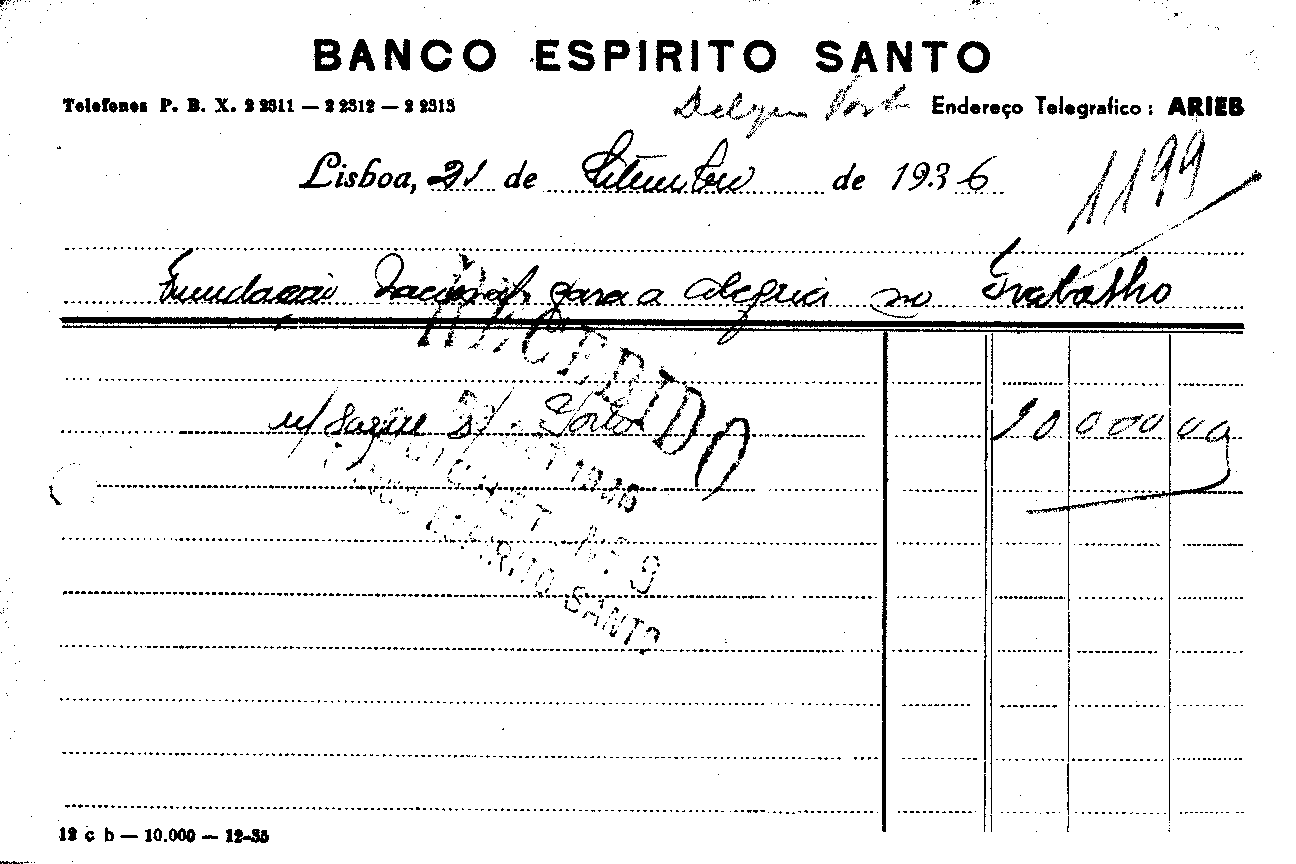 BANCO ESPIRITO SANTO
Telefones P. B. X. 2 2311 — 2 2312 — 2 2313
Endereço Telegrafico: ARIEB
Lisboa, 21 de Setembro de 1936
1199
Fundação Nacional para a alegria no Trabalho
RECEBIDO
s/ Porto
10 000 00
GUICHET Nº 9
BANCO ESPIRITO SANTO
12 c b — 10.000 — 12-35